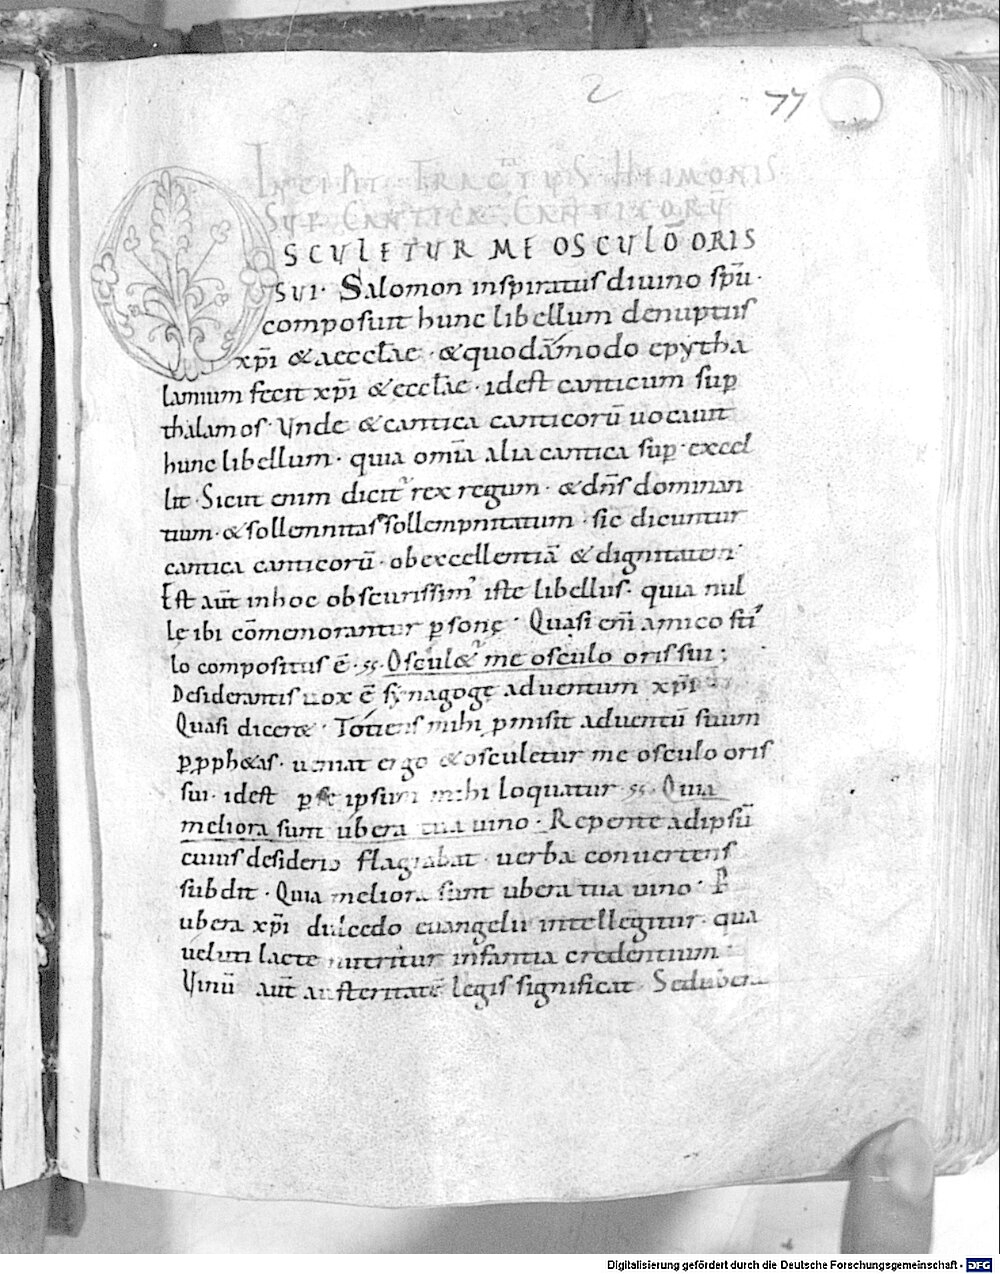 2 77
INCIPIT TRACTUS HEIMONIS
SUP CANTICA CANTICORŪ
OSCULETUR ME OSCULO ORIS
SUI · Salomon inspiratus diuino spū ·
composuit hunc libellum denuptiis
xp̄i & aecclae · & quodāmodo epytha
lamium fecit xp̄i & ecclae · idest canticum sup
thalamos · Unde & cantica canticorū uocauit
hunc libellum · quia om̄ia alia cantica sup excel
lit · Sicut enim dicit rex regum · & dn̄s dominan
tium · & sollemnitas sollempnitatum · sic dicuntur
cantica canticorū · ob excellentiā & dignitatem ·
Est aūt inhoc obscurissim' iste libellus · quia nul
lę ibi cōmemorantur psonę · Quasi eni amico sti
lo compositus ē · Oscul& me osculo oris sui ;
Desiderantis uox ē synagogę aduentum xp̄i
Quasi dicer& · Totiens mihi pmisit aduentū suum
p pph&as · ueniat ergo & osculetur me osculo oris
sui · idest p se ipsum mihi loquatur · Quia
meliora sunt ubera tua uino · Repente adipsū
cuius desiderio flagrabat uerba conuertens
subdit · Quia meliora sunt ubera tua uino · P
ubera xp̄i dulcedo euangelii intellegitur · qua
ueluti lacte nutritur infantia credentium
Uinū aūt austeritatē legis significat Sed ubera
Digitalisierung gefördert durch die Deutsche Forschungsgemeinschaft - DFG